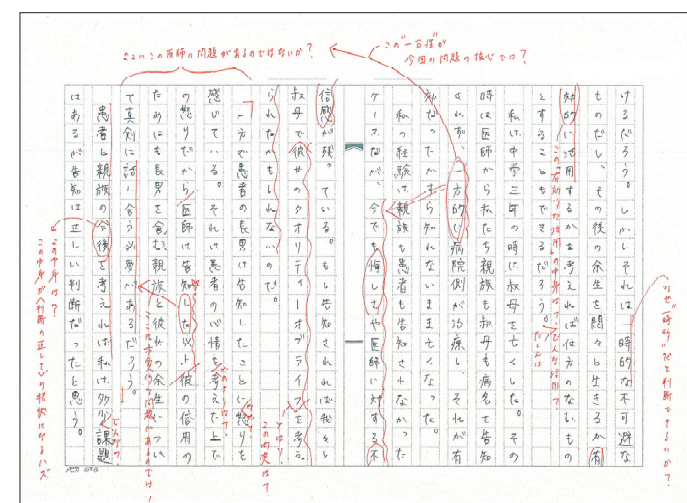 けるだろう。しかしそれは一時的な不可避な
ものだし、その後の余生を悶々と生きるか有
効的に活用するかを考えれば仕方のないもの
とすることもできるだろう。
私は、中学三年の時に叔母を亡くした。その
時は医師から私たち親族も叔母も病名を告知
されず、一方的に病院側が治療し、それが有
効だったかすら知れないまま亡くなった。
私の経験は親族も患者も告知されなかった
ケースだが、今でも悔しさや医師に対する不
信感が残っている。もし告知されれば私たち
叔母で彼女のクオリティーオブライフを考え
られたかもしれないのだ。
一方で患者の長男は告知したことに怒りを
感じている。それは患者の心情を考えた上で
の怒りだから医師は告知した以上彼の信用の
ためにも長男を含む親族と彼の余生につい
て真剣に話し合う必要があるだろう。
患者と親族の今後を考えれば私は、多少課題
はあるが告知は正しい判断だったと思う。
なぜ「一時的？」だと判断できるのか？
この"一方性"が
今回の問題の核心では？
ここにこの医師の問題があるのではないか？
この中身は？
この中身が〈判断の正しさ〉の根拠になるハズ